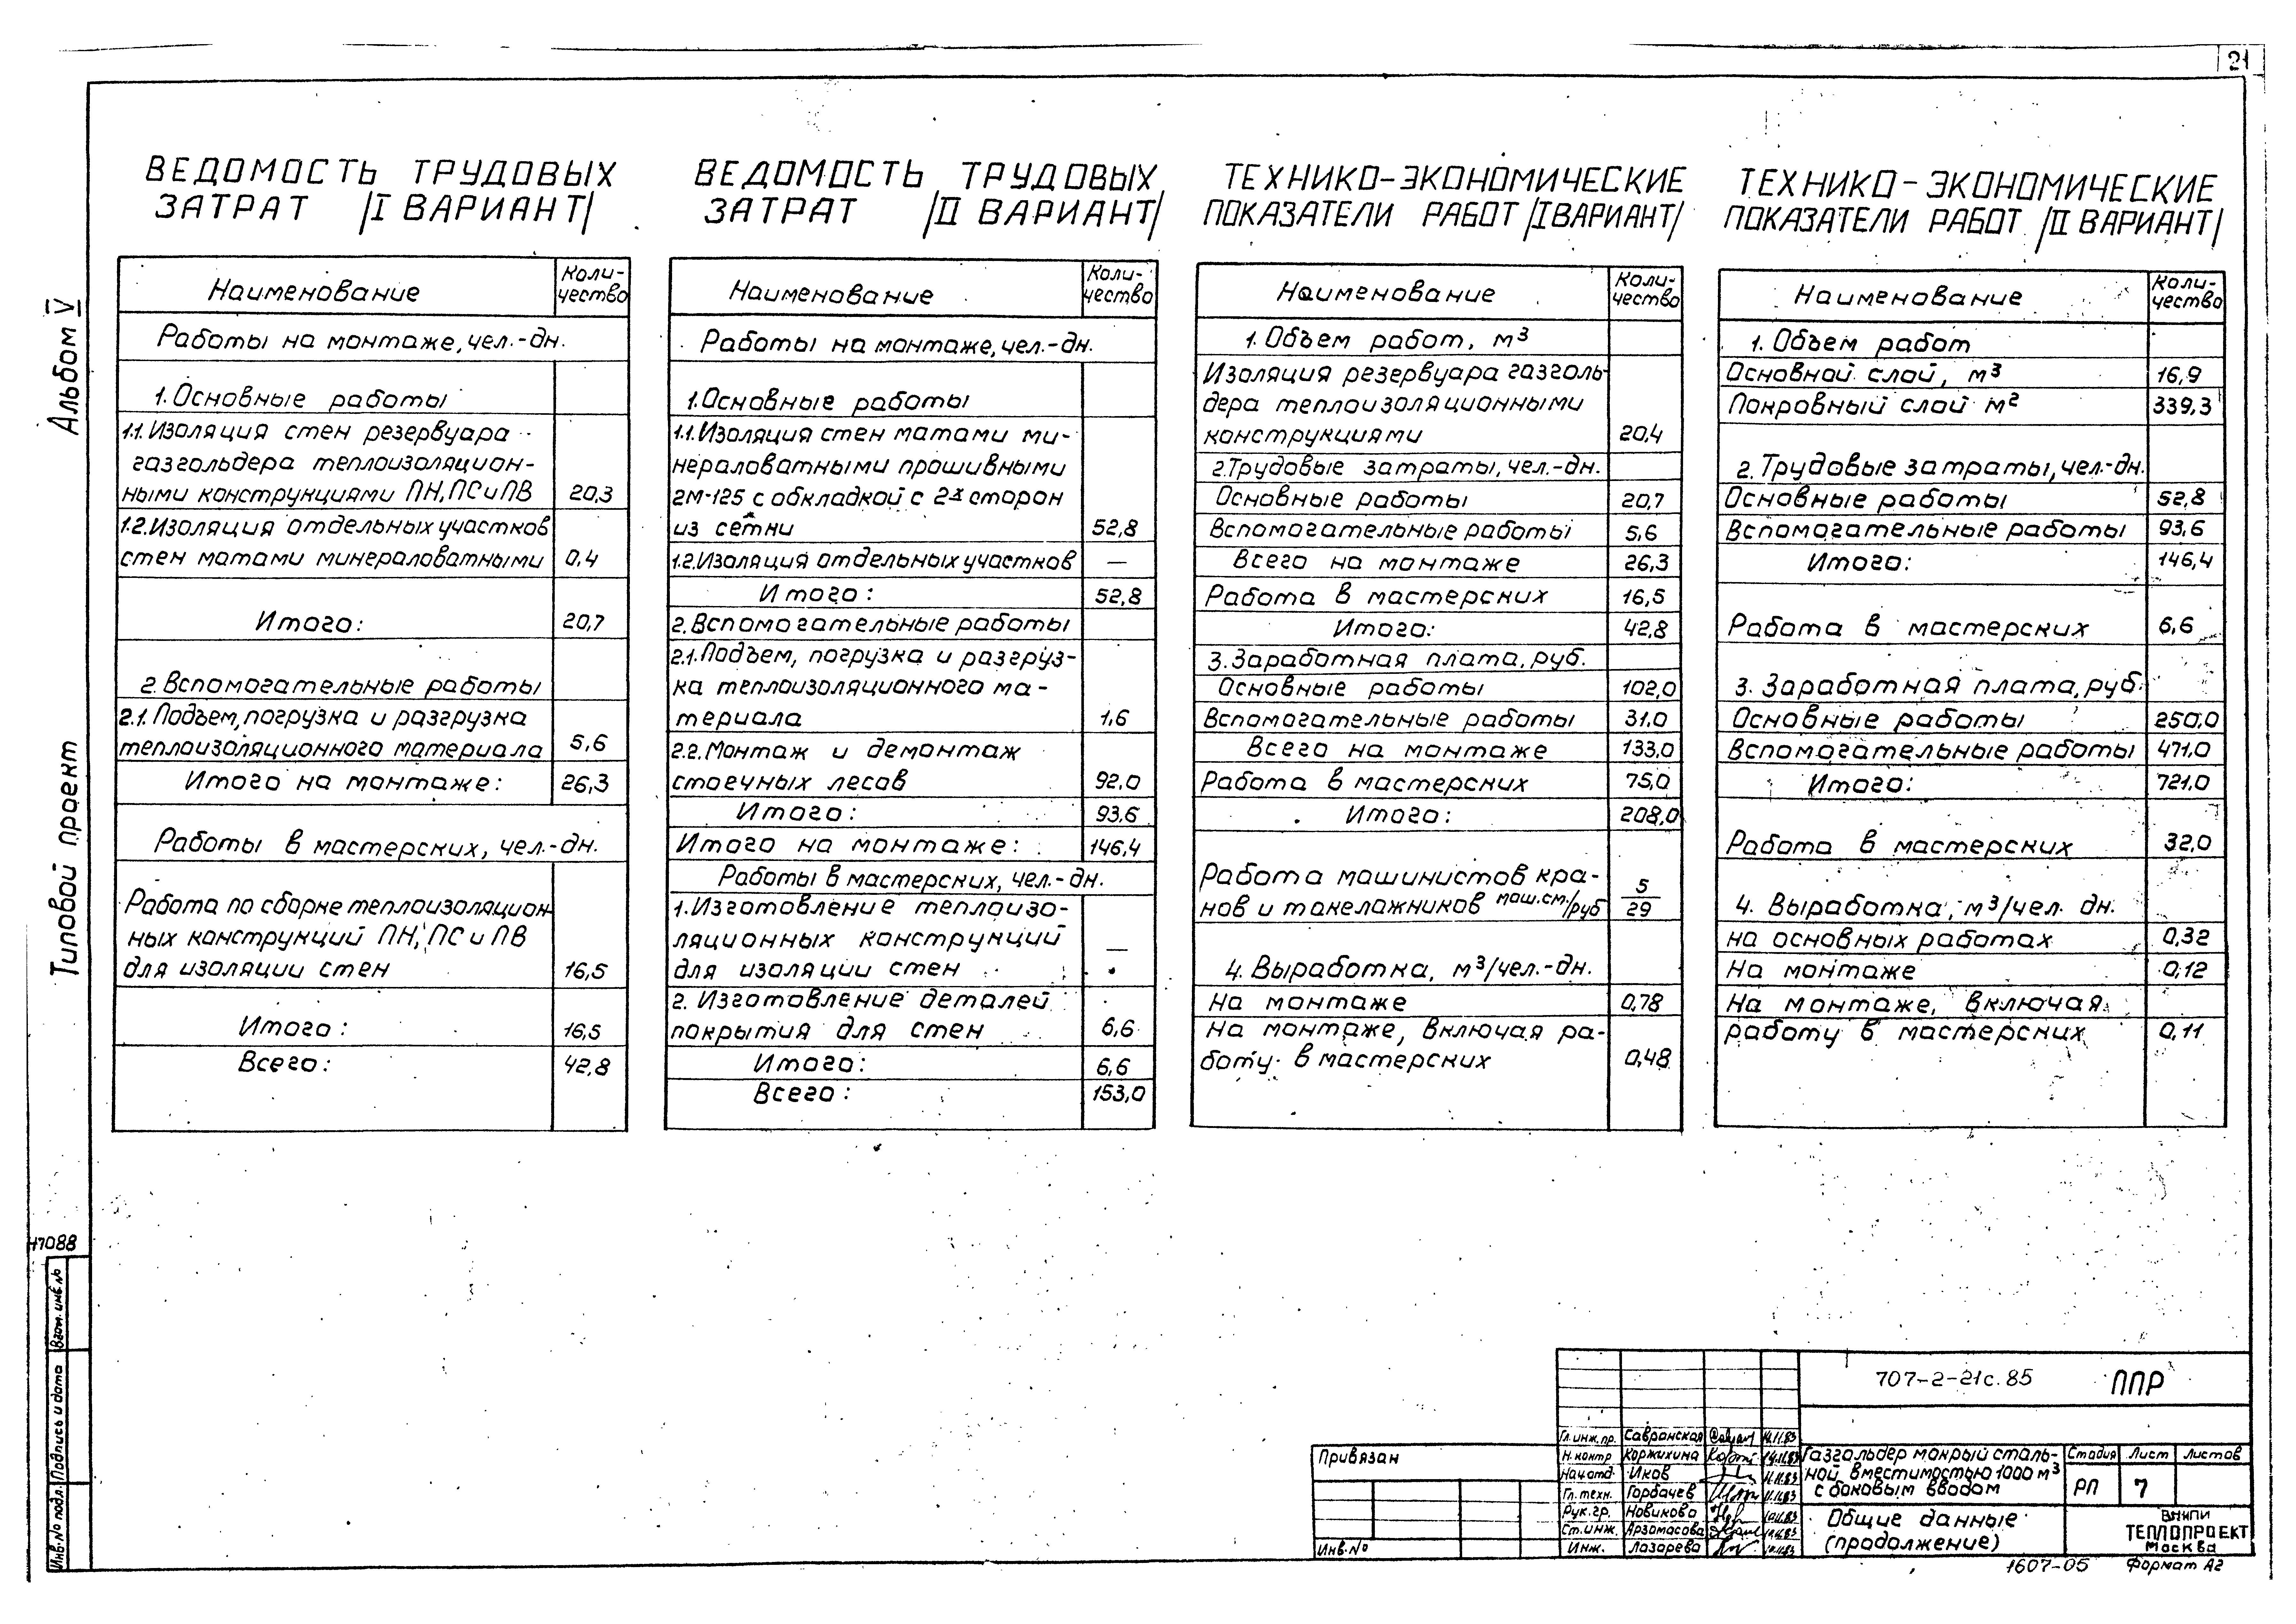 21
Альбом V
Типовой проект
ВЕДОМОСТЬ ТРУДОВЫХ
ЗАТРАТ /I ВАРИАНТ/
Наименование
Коли-
чество
Работы на монтаже, чел.-дн.
1. Основные работы
1.1. Изоляция стен резервуара
газгольдера теплоизоляцион-
ными конструкциями ПН, ПС и ПВ 20,3
1.2. Изоляция отдельных участков
стен матами минераловатными 0,4
Итого: 20,7
2. Вспомогательные работы
2.1. Подъем, погрузка и разгрузка
теплоизоляционного материала 5,6
Итого на монтаже: 26,3
Работы в мастерских, чел.-дн.
Работа по сборке теплоизоляцион-
ных конструкций ПН, ПС и ПВ
для изоляции стен 16,5
Итого: 16,5
Всего: 42,8
ВЕДОМОСТЬ ТРУДОВЫХ
ЗАТРАТ /II ВАРИАНТ/
Наименование
Коли-
чество
Работы на монтаже, чел.-дн.
1. Основные работы
1.1. Изоляция стен матами ми-
нераловатными прошивными
2М-125 с обкладкой с 2х сторон
из сетки 52,8
1.2. Изоляция отдельных участков —
Итого: 52,8
2. Вспомогательные работы
2.1. Подъем, погрузка и разгруз-
ка теплоизоляционного ма-
териала 1,6
2.2. Монтаж и демонтаж
стоечных лесов 92,0
Итого: 93,6
Итого на монтаже: 146,4
Работы в мастерских, чел.-дн.
1. Изготовление теплоизо-
ляционных конструкций
для изоляции стен —
2. Изготовление деталей
покрытия для стен 6,6
Итого: 6,6
Всего: 153,0
ТЕХНИКО-ЭКОНОМИЧЕСКИЕ
ПОКАЗАТЕЛИ РАБОТ /I ВАРИАНТ/
Наименование
Коли-
чество
1. Объем работ, м³
Изоляция резервуара газголь-
дера теплоизоляционными
конструкциями 20,4
2. Трудовые затраты, чел.-дн.
Основные работы 20,7
Вспомогательные работы 5,6
Всего на монтаже 26,3
Работа в мастерских 16,5
Итого: 42,8
3. Заработная плата, руб.
Основные работы 102,0
Вспомогательные работы 31,0
Всего на монтаже 133,0
Работа в мастерских 75,0
Итого: 208,0
Работа машинистов кра-
нов и такелажников маш.см./руб 5/29
4. Выработка, м³/чел.-дн.
На монтаже 0,78
На монтаже, включая ра-
боту в мастерских 0,48
ТЕХНИКО-ЭКОНОМИЧЕСКИЕ
ПОКАЗАТЕЛИ РАБОТ /II ВАРИАНТ/
Наименование
Коли-
чество
1. Объем работ
Основной слой, м³ 16,9
Покровный слой м² 339,3
2. Трудовые затраты, чел.-дн.
Основные работы 52,8
Вспомогательные работы 93,6
Итого: 146,4
Работа в мастерских 6,6
3. Заработная плата, руб.
Основные работы 250,0
Вспомогательные работы 471,0
Итого: 721,0
Работа в мастерских 32,0
4. Выработка, м³/чел. дн.
на основных работах 0,32
На монтаже 0,12
На монтаже, включая
работу в мастерских 0,11
17088
Взам. инв. №
Подпись и дата
Инв. № подл.
Привязан
Инв. №
707-2-21с.85 ППР
Гл. инж. пр. Савранская 14.11.83
Н. контр Коржихина 14.11.83
Нач. отд. Иков 11.11.83
Гл. техн. Горбачев 11.11.83
Рук. гр. Новикова 10.11.83
Ст. инж. Арзамасова 10.11.83
Инж. Лазарева 10.11.83
Газгольдер мокрый сталь-
ной вместимостью 1000 м³
с боковым вводом
Стадия Лист Листов
РП 7
Общие данные
(продолжение)
ВНИПИ
ТЕПЛОПРОЕКТ
Москва
1607-05 Формат А2